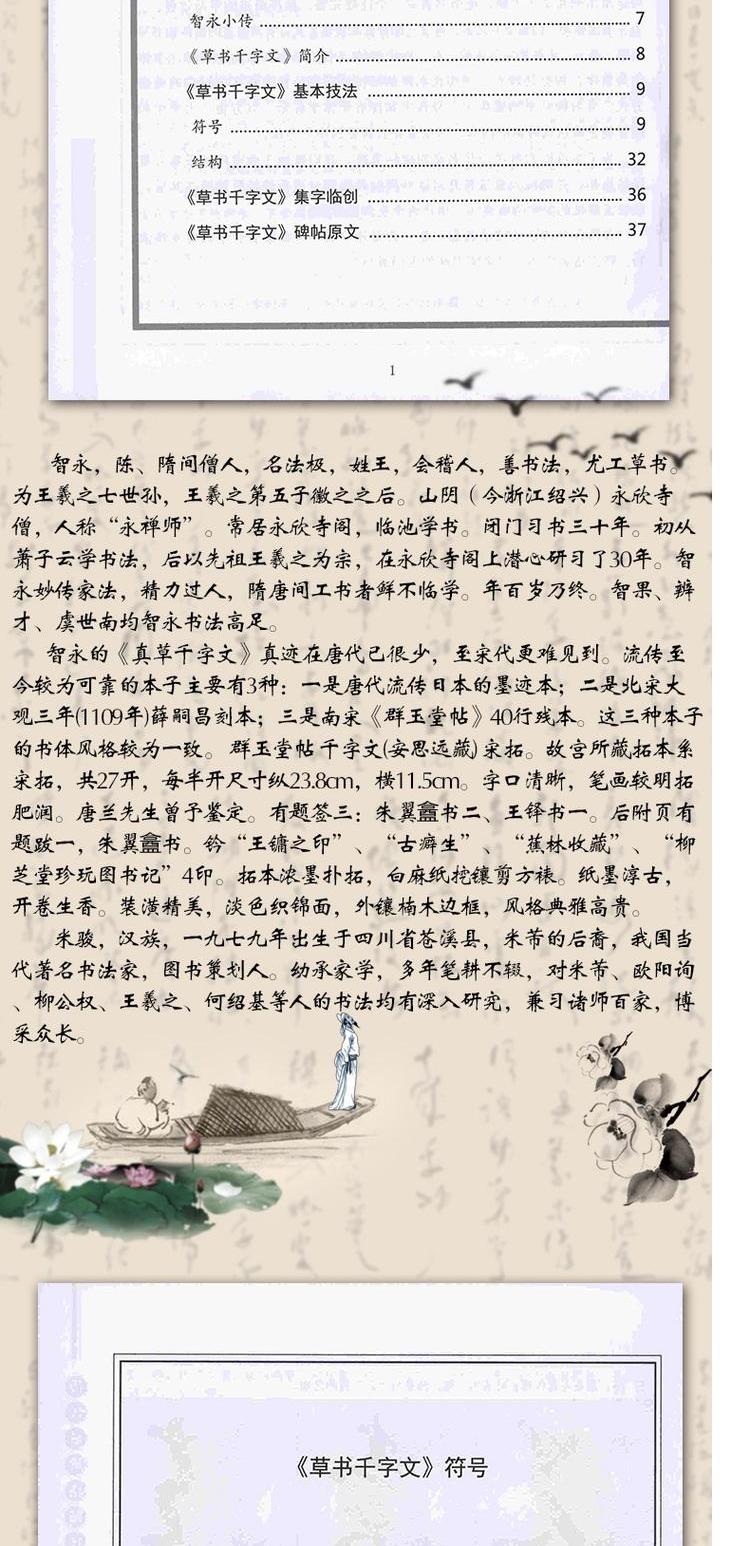 智永小传 7
《草书千字文》简介 8
《草书千字文》基本技法 9
符号 9
结构 32
《草书千字文》集字临创 36
《草书千字文》碑帖原文 37
1
智永，陈、隋间僧人，名法极，姓王，会稽人，善书法，尤工草书。
为王羲之七世孙，王羲之第五子徽之之后。山阴（今浙江绍兴）永欣寺
僧，人称“永禅师”。常居永欣寺阁，临池学书。闭门习书三十年。初从
萧子云学书法，后以先祖王羲之为宗，在永欣寺阁上潜心研习了30年。智
永妙传家法，精力过人，隋唐间工书者鲜不临学。年百岁乃终。智果、辨
才、虞世南均智永书法高足。
智永的《真草千字文》真迹在唐代已很少，至宋代更难见到。流传至
今较为可靠的本子主要有3种：一是唐代流传日本的墨迹本；二是北宋大
观三年(1109年)薛嗣昌刻本；三是南宋《群玉堂帖》40行残本。这三种本子
的书体风格较为一致。 群玉堂帖千字文(安思远藏)宋拓。故宫所藏拓本系
宋拓，共27开，每半开尺寸纵23.8cm，横11.5cm。字口清晰，笔画较明拓
肥润。唐兰先生曾予鉴定。有题签三：朱翼盦书二、王铎书一。后附页有
题跋一，朱翼盦书。钤“王镛之印”、“古癖生”、“蕉林收藏”、“柳
芝堂珍玩图书记”4印。拓本浓墨扑拓，白麻纸挖镶剪方裱。纸墨淳古，
开卷生香。装潢精美，淡色织锦面，外镶楠木边框，风格典雅高贵。
米骏，汉族，一九七九年出生于四川省苍溪县，米芾的后裔，我国当
代著名书法家，图书策划人。幼承家学，多年笔耕不辍，对米芾、欧阳询
、柳公权、王羲之、何绍基等人的书法均有深入研究，兼习诸师百家，博
采众长。
《草书千字文》符号